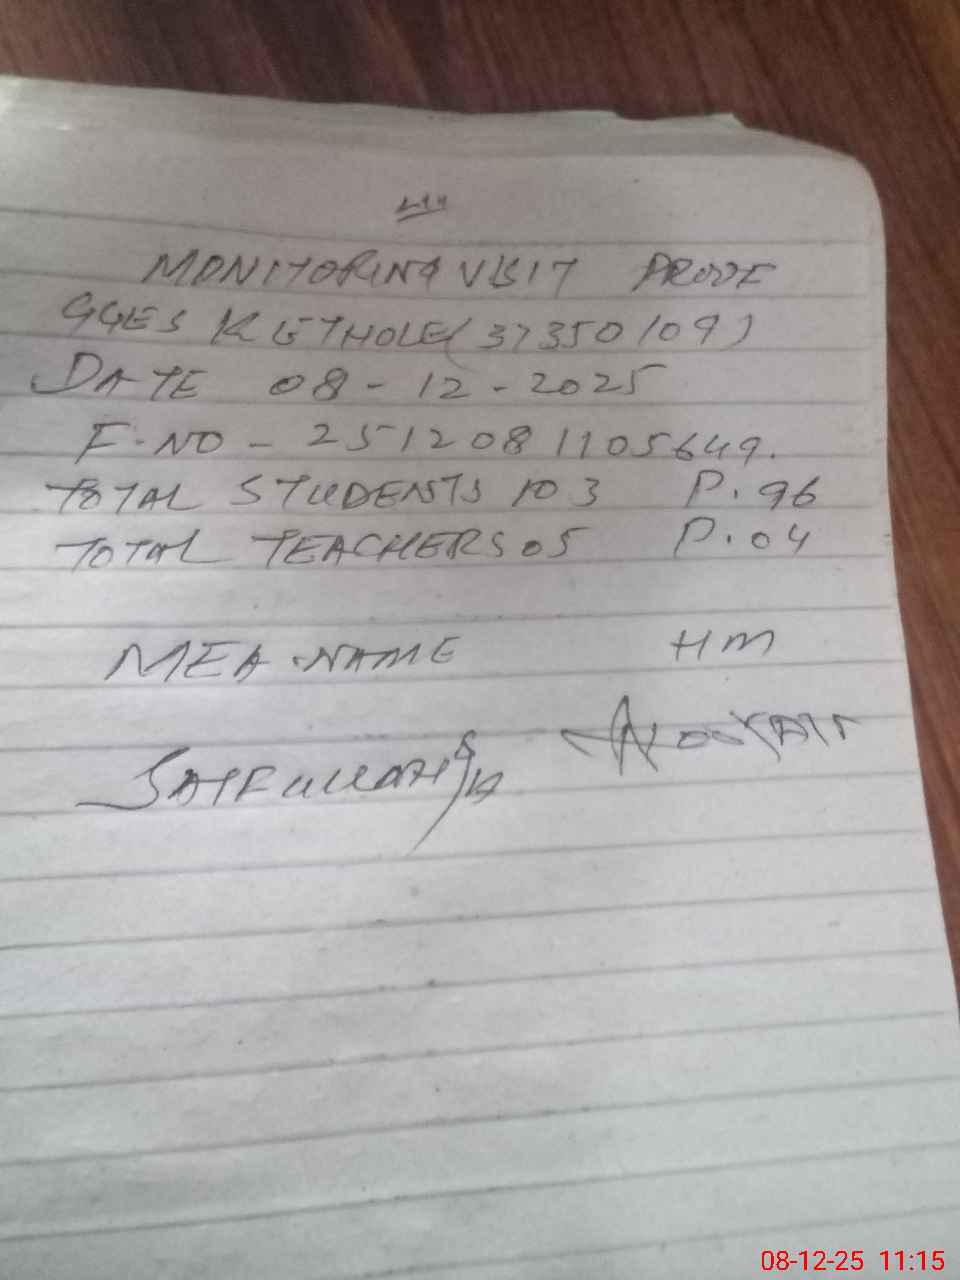 MONITORING VISIT PROOF
GGES KETHOLE (37350109)
DATE 08-12-2025
F.NO - 2512081105649.
TOTAL STUDENTS 103 P.96
TOTAL TEACHERS 05 P.04
MEA.NAME HM
SAIFULLAH
08-12-25 11:15